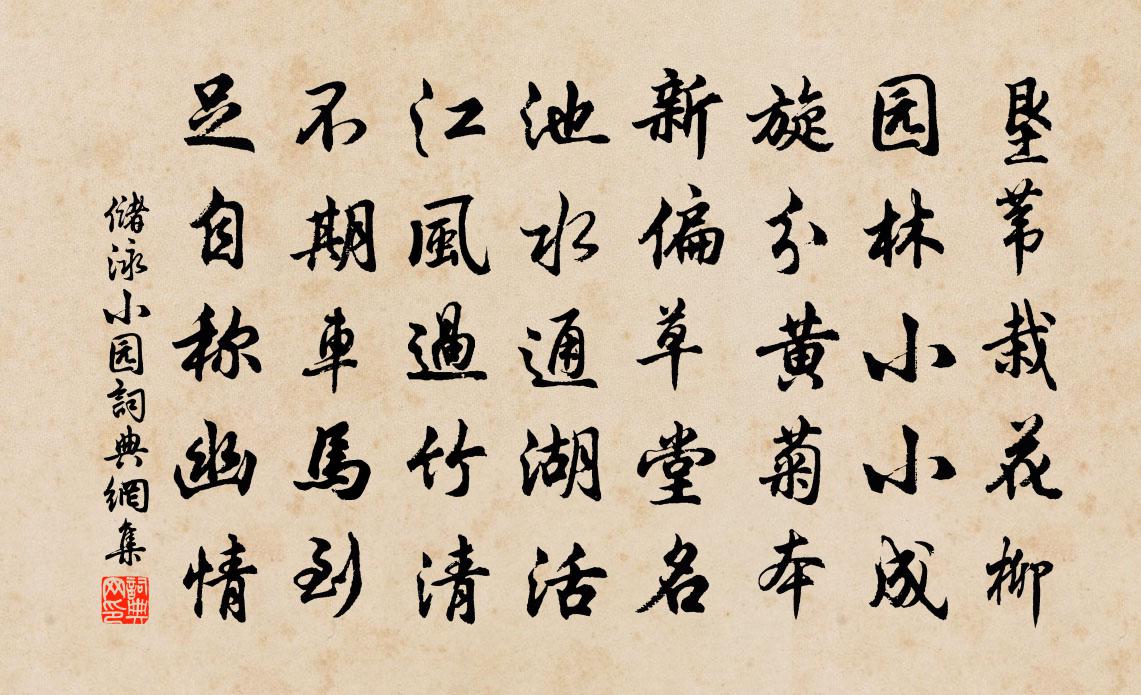 垦苇栽花柳
园林小小成
旋分黄菊本
新偏草堂名
池水通湖活
江風過竹清
不期車馬到
足自称幽情
儲泳小园詞典網集
詞典网印